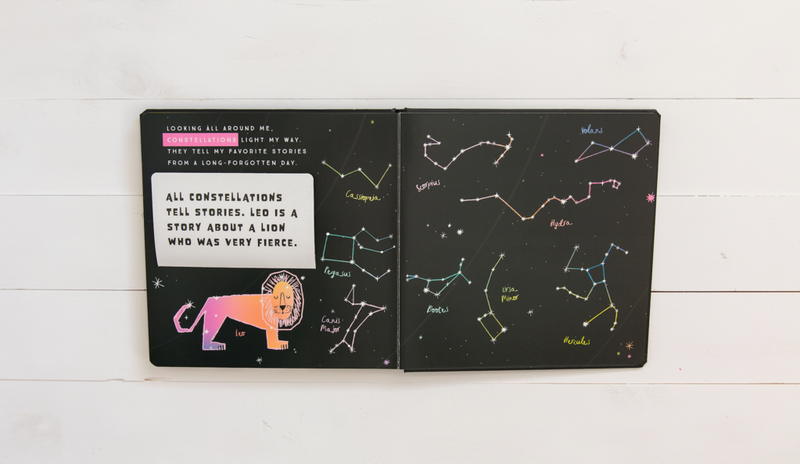 LOOKING ALL AROUND ME,
CONSTELLATIONS LIGHT MY WAY.
THEY TELL MY FAVORITE STORIES
FROM A LONG-FORGOTTEN DAY.
ALL CONSTELLATIONS
TELL STORIES. LEO IS A
STORY ABOUT A LION
WHO WAS VERY FIERCE.
Cassiopeia
Pegasus
Leo
Canis
Major
Volans
Scorpius
Hydra
Bootes
Ursa
Minor
Hercules